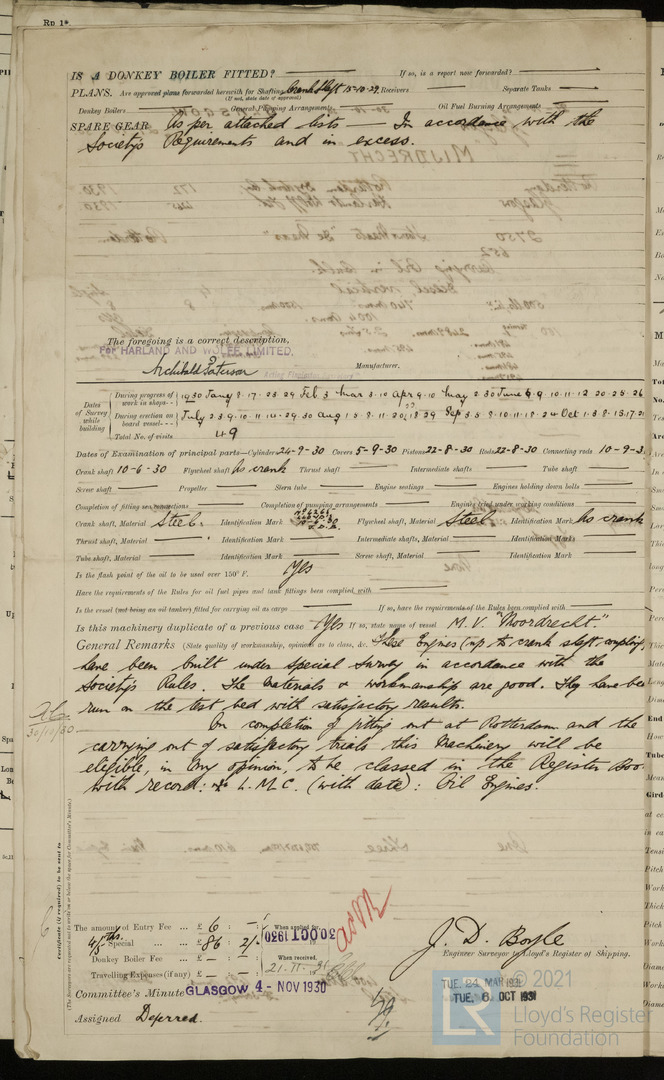 Rp 1*.
IS A DONKEY BOILER FITTED? If so, is a report now forwarded?
PLANS. Are approved plans forwarded herewith for Shafting Crank Shaft 15-10-29 Receivers Separate Tanks
(If not, state date of approval)
Donkey Boilers General Pumping Arrangements Oil Fuel Burning Arrangements
SPARE GEAR As per attached lists — In accordance with the
Society's Requirements and in excess.
The foregoing is a correct description,
FOR HARLAND AND WOLFF LIMITED.
Archibald Paterson Manufacturer.
Dates of Survey while building
During progress of work in shops - - 1930 Jany 8.17.23.29 Feb 3 Mar 3.10 Apr 9.10 May 2.30 June 6.9.10.11.12.20.25.26
During erection on board vessel - - - July 2.3.9.10.11.14.29.30 Aug 1.5.8.11.20.22.28.29 Sep 3.5.8.10.11.12.24 Oct 1.3.8.13.17.21
Total No. of visits 49
Dates of Examination of principal parts—Cylinders 24-9-30 Covers 5-9-30 Pistons 22-8-30 Rods 22-8-30 Connecting rods 10-9-3
Crank shaft 10-6-30 Flywheel shaft As crank Thrust shaft Intermediate shafts Tube shaft
Screw shaft Propeller Stern tube Engine seatings Engines holding down bolts
Completion of fitting sea connections Completion of pumping arrangements Engines tried under working conditions
Crank shaft, Material Steel. Identification Mark 10-6-30 Flywheel shaft, Material Steel Identification Mark As crank
Thrust shaft, Material Identification Mark Intermediate shafts, Material Identification Marks
Tube shaft, Material Identification Mark Screw shaft, Material Identification Mark
Is the flash point of the oil to be used over 150° F. Yes
Have the requirements of the Rules for oil fuel pipes and tank fittings been complied with
Is the vessel (not being an oil tanker) fitted for carrying oil as cargo If so, have the requirements of the Rules been complied with
Is this machinery duplicate of a previous case Yes If so, state name of vessel M.V. "Noordrecht."
General Remarks (State quality of workmanship, opinions as to class, &c. These Engines (up to crank shaft coupling)
have been built under Special Survey in accordance with the
Society's Rules. The materials & workmanship are good. They have be
run on the test bed with satisfactory results.
On completion of fitting out at Rotterdam and the
carrying out of satisfactory trials this Machinery will be
eligible, in my opinion, to be classed in the Register Boo
with record: L.M.C. (with date): Oil Engines.
30/10/30
Certificate (if required) to be sent to
(The Surveyors are requested not to write on or below the space for Committee's Minute.)
The amount of Entry Fee ... £ 6 : — When applied for,
4/5ths. Special ... £ 86 : 2/- 30 OCT 1930
Donkey Boiler Fee ... £ — : — When received,
Travelling Expenses (if any) £ — : —
J. D. Boyle
Engineer Surveyor to Lloyd's Register of Shipping.
Committee's Minute GLASGOW 4 - NOV 1930
TUE. 24 MAR 1931
TUE. 6 OCT 1931
Assigned Deferred.
© 2021
Lloyd's Register
Foundation
LR